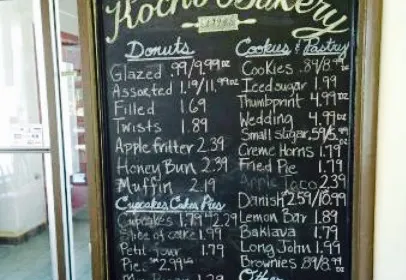 Koch's Bakery
Donuts
Glazed .99/9.99 DZ
Assorted 1.19/11.99 DZ
Filled 1.69
Twists 1.89
Apple fritter 2.39
Honey Bun 2.39
Muffin 2.19
Cupcakes Cakes Pies
Cupcakes 1.79-2.29
Slice of cake 1.99
Petit four 1.79
Pies 2.99
Cookies & Pastry
Cookies .89/8.99 DZ
Iced sugar 1.99
Thumbprint 4.99 DZ
Wedding 4.99 DZ
Small sugar .59/5.99 DZ
Creme Horns 1.79
Fried Pie 1.79
Apple Taco 2.39
Danish 2.59/18.99
Lemon Bar 1.89
Baklava 1.79
Long John 1.99
Brownies .89/8.99 DZ
Other